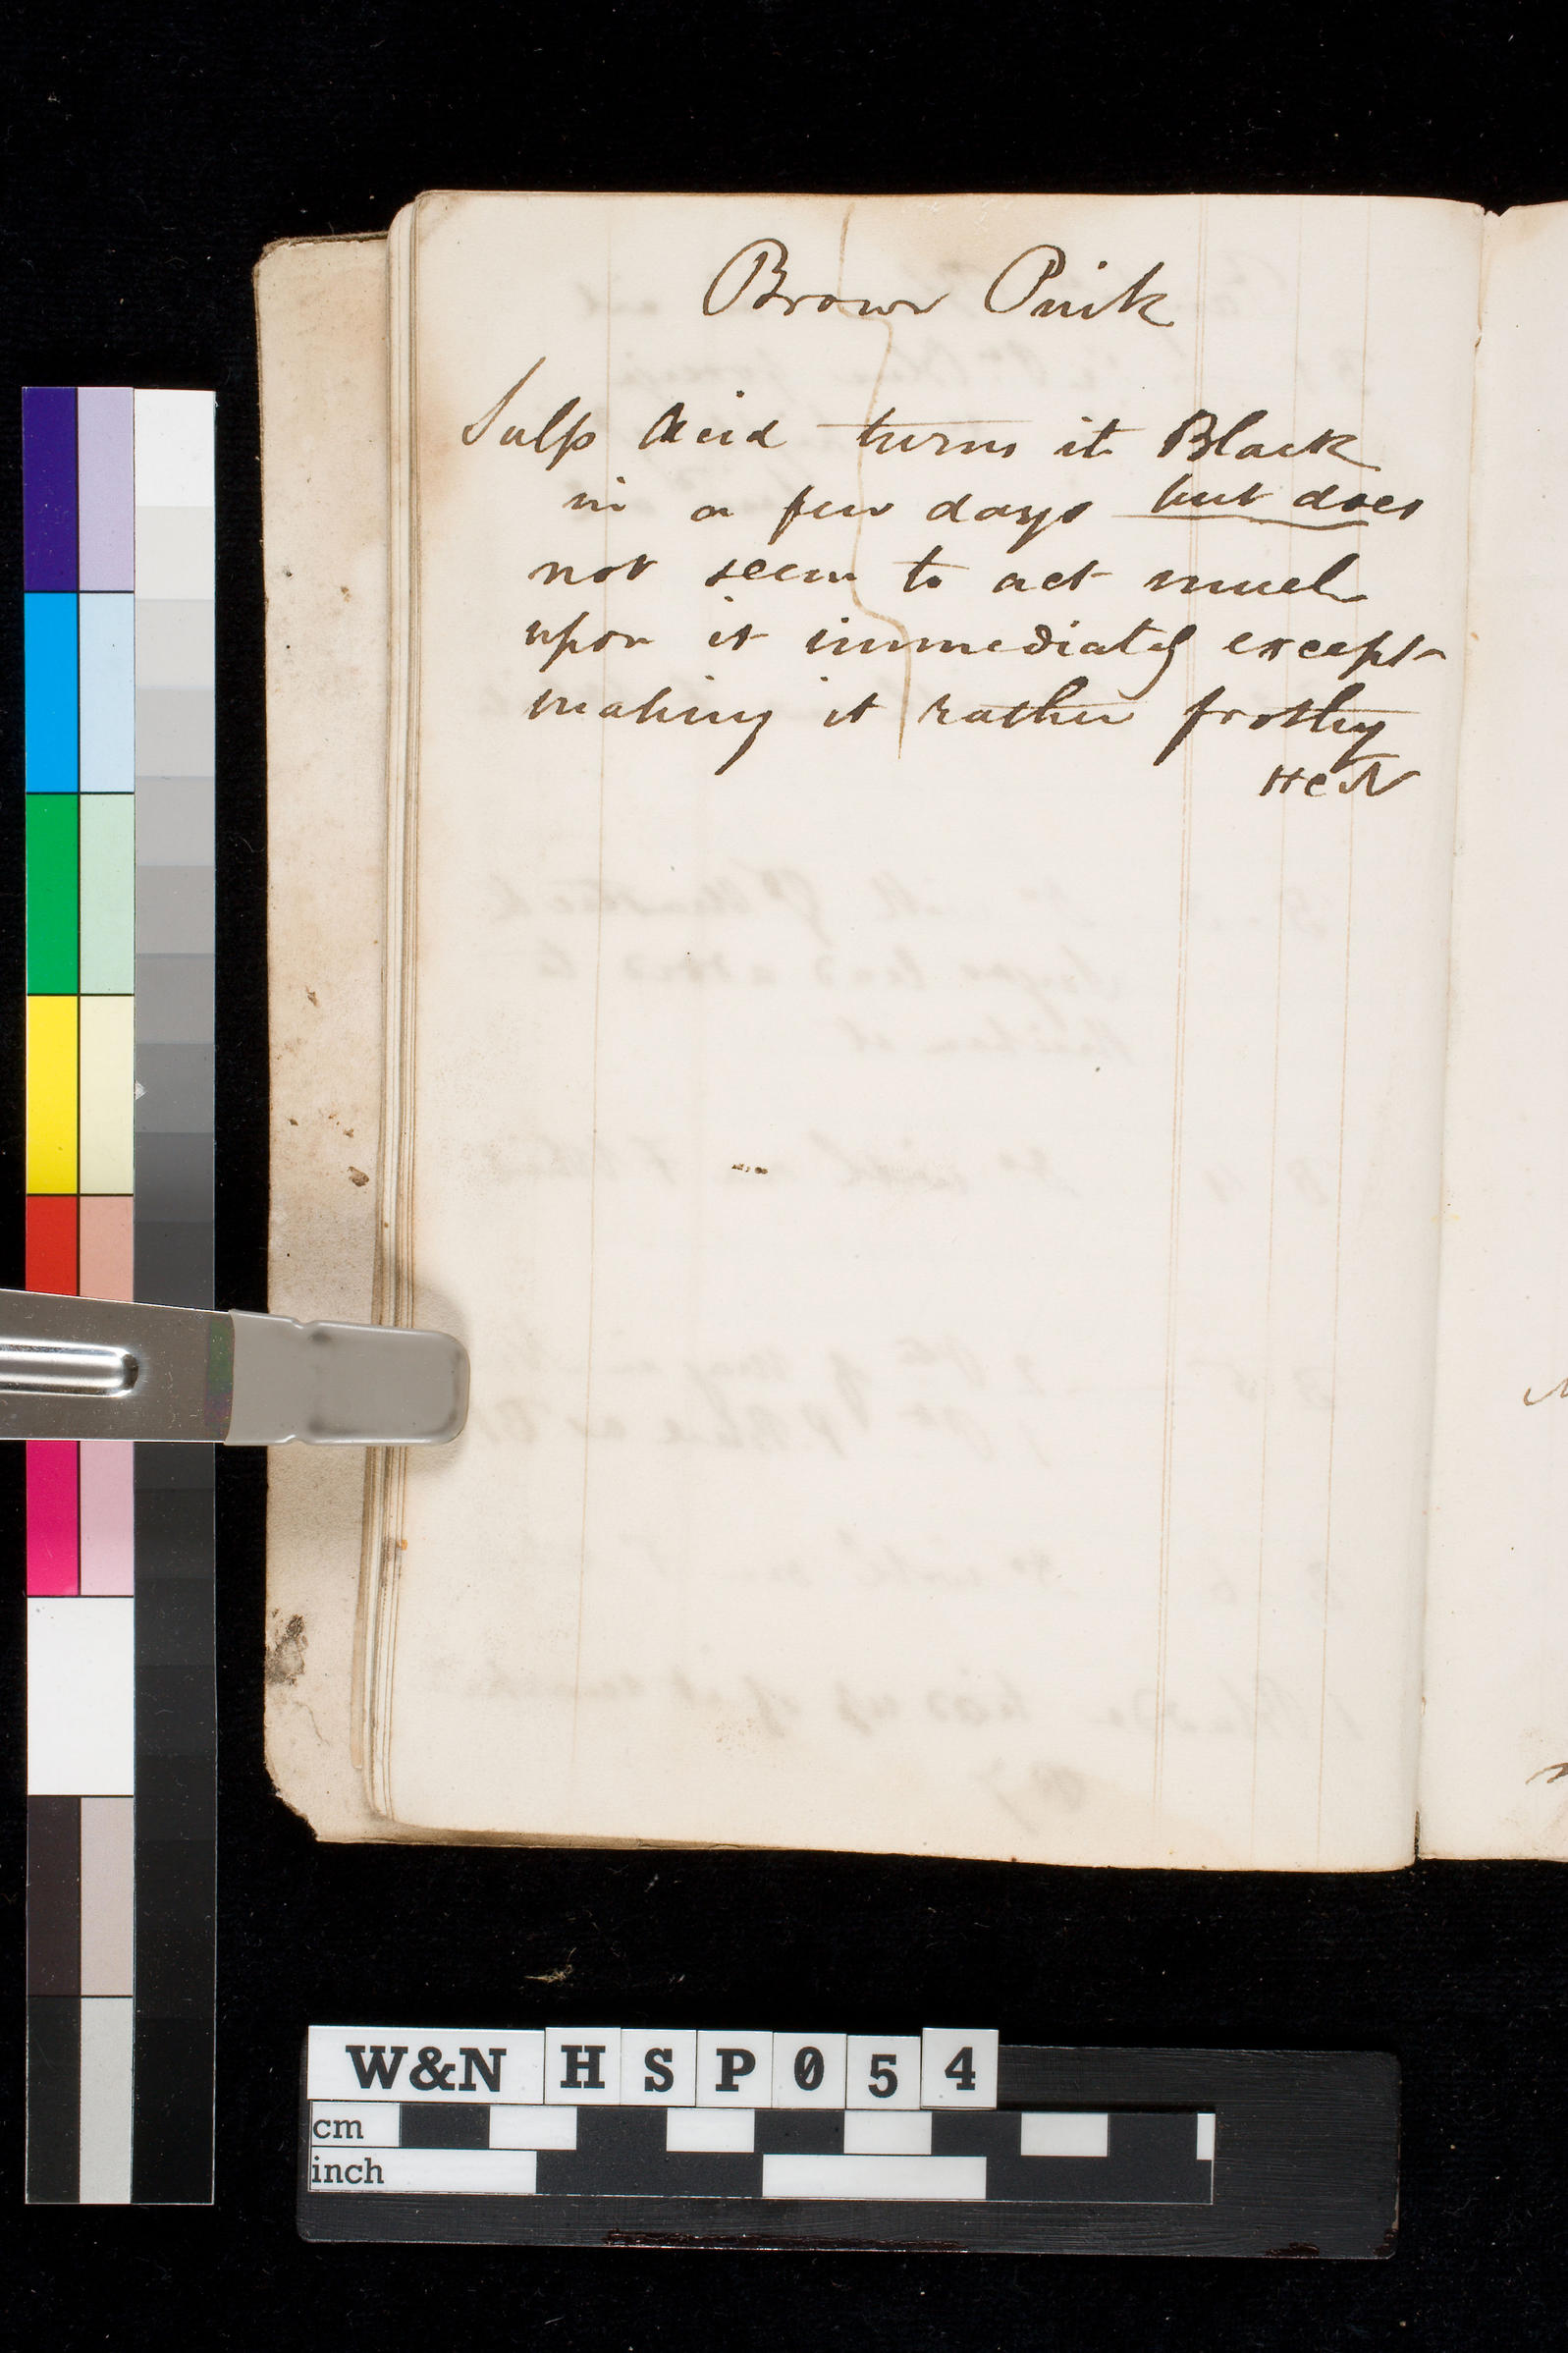 Brown Pink
Sulp Acid turns it Black
in a few days but does
not seem to act much
upon it immediately except
making it rather frothy
HCN
W&N HSP054
cm
inch